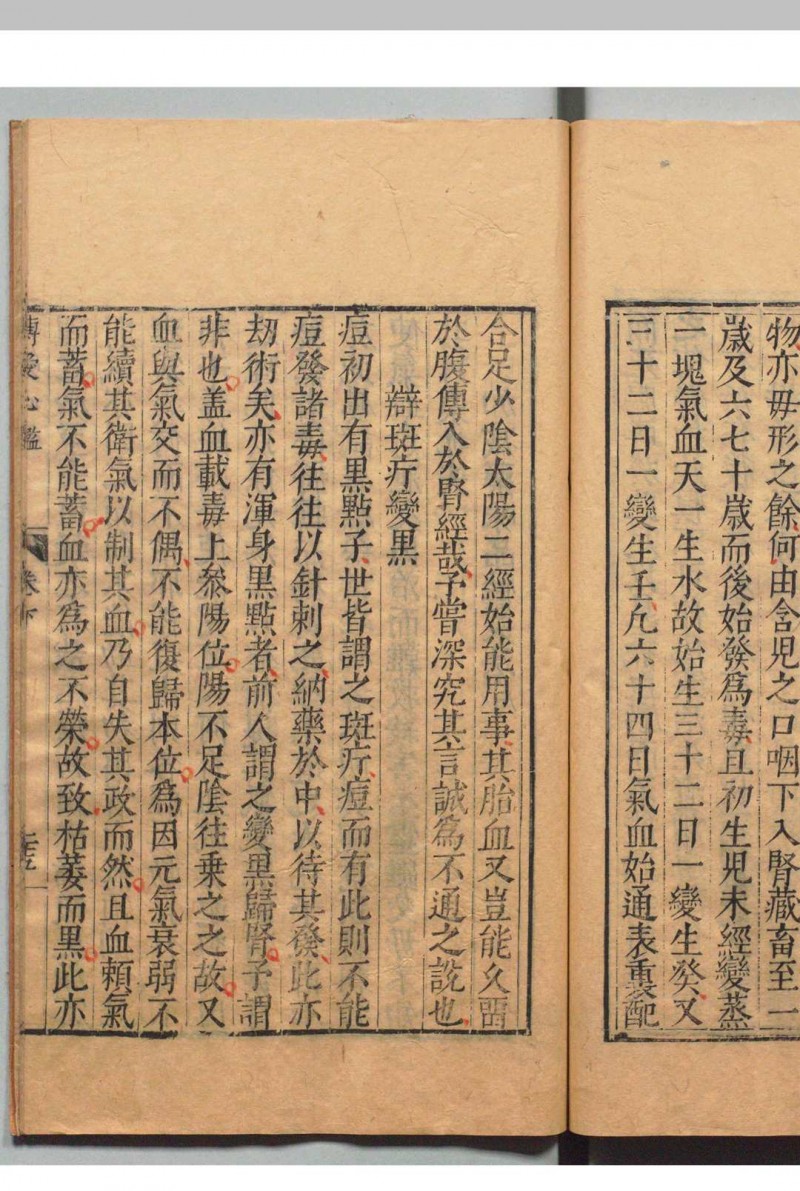 物亦毋形之餘何由含児之口咽下入腎藏畜至一
歳及六七十歳而後始發爲毒且初生児未經變蒸
一塊氣血天一生水故始生三十二日一變生癸又
三十二日一變生壬凢六十四日氣血始通表裏配
合足少陰太陽二經始能用事其胎血又豈能久畱
於腹傳入於腎經哉予嘗深究其言誠爲不通之說也
辯斑疔變黒
痘初出有黒點子世皆謂之斑疔痘而有此則不能
痘發諸毒往往以針刺之納藥於中以待其發此亦
劫術矣亦有渾身黒點者前人謂之變黒歸腎予謂
非也盖血載毒上叅陽位陽不足陰往乗之之故又
血與氣交而不偶不能復歸本位爲因元氣衰弱不
能續其衛氣以制其血乃自失其政而然且血頼氣
而蓄氣不能蓄血亦爲之不榮故致枯萎而黒此亦
博愛心鑑
卷下